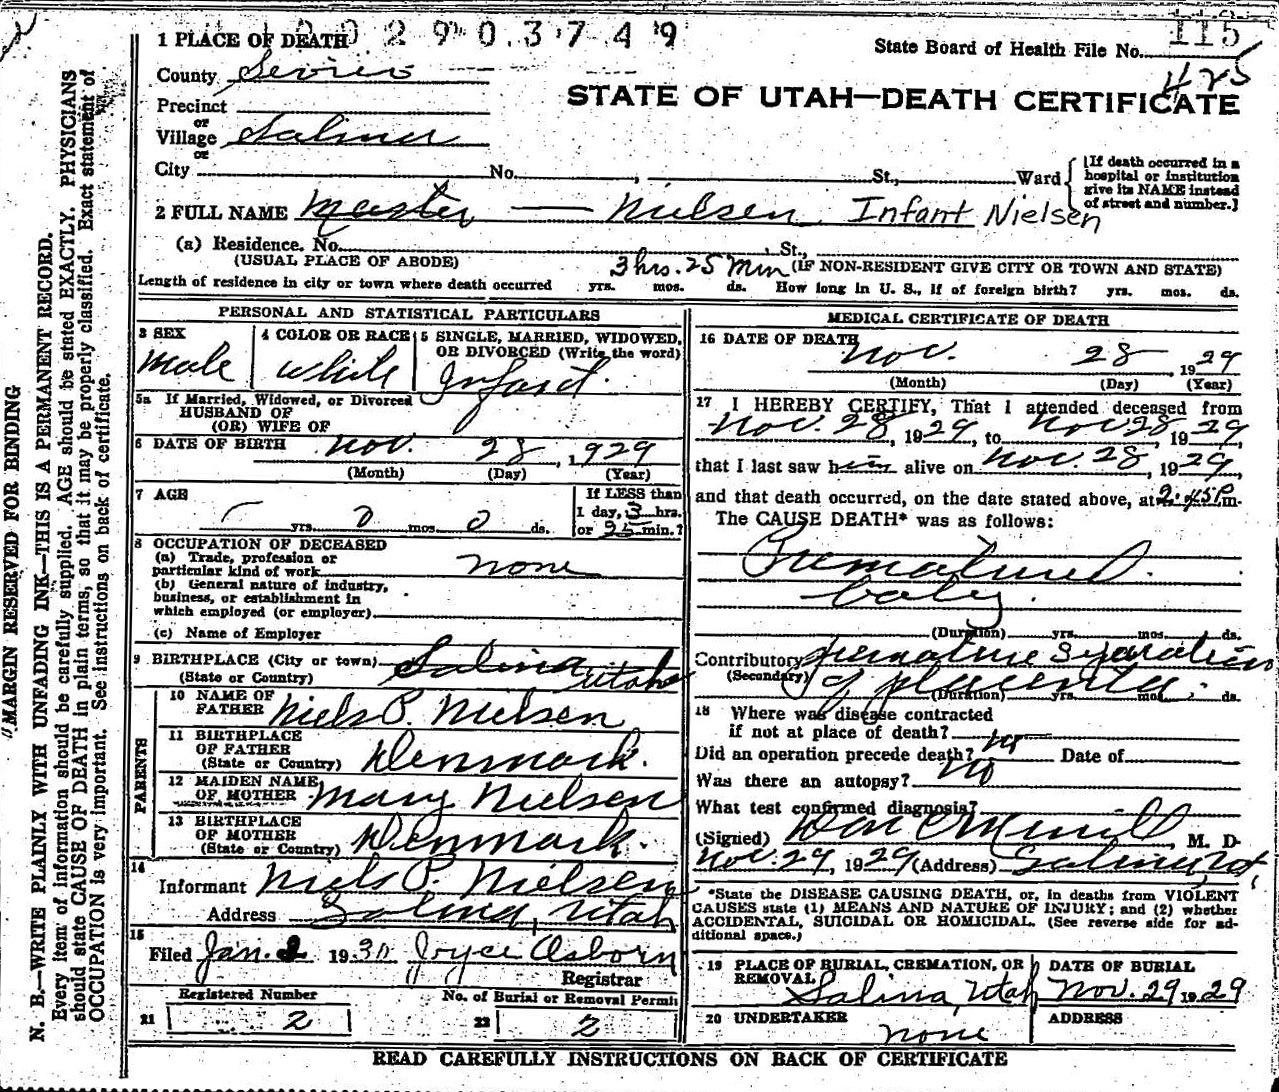 2 0 2 9 0 3 7 4 9
1 PLACE OF DEATH
State Board of Health File No. 115
425
County Sevier
STATE OF UTAH—DEATH CERTIFICATE
Precinct
or
Village Salina
or
City No. , St., Ward
[If death occurred in a
hospital or institution
give its NAME instead
of street and number.]
2 FULL NAME Master — Nielsen Infant Nielsen
(a) Residence. No. , St.,
(USUAL PLACE OF ABODE) 3 hrs. 25 Min (IF NON-RESIDENT GIVE CITY OR TOWN AND STATE)
Length of residence in city or town where death occurred yrs. mos. ds. How long in U. S., if of foreign birth? yrs. mos. ds.
PERSONAL AND STATISTICAL PARTICULARS
3 SEX
Male
4 COLOR OR RACE
white
5 SINGLE, MARRIED, WIDOWED,
OR DIVORCED (Write the word)
Infant.
5a If Married, Widowed, or Divorced
HUSBAND OF
(OR) WIFE OF
6 DATE OF BIRTH Nov. 28, 1929
(Month) (Day) (Year)
7 AGE
yrs. 0 mos. 0 ds.
If LESS than
1 day, 3 hrs.
or 25 min.?
8 OCCUPATION OF DECEASED
(a) Trade, profession or
particular kind of work none
(b) General nature of industry,
business, or establishment in
which employed (or employer)
(c) Name of Employer
9 BIRTHPLACE (City or town) Salina
(State or Country) Utah
PARENTS
10 NAME OF
FATHER Niels P. Nielsen
11 BIRTHPLACE
OF FATHER
(State or Country) Denmark.
12 MAIDEN NAME
OF MOTHER Mary Nielsen
13 BIRTHPLACE
OF MOTHER
(State or Country) Denmark.
14
Informant Niels P. Nielsen
Address Salina, Utah
15
Filed Jan. 2 1930 Joyce Osborn
Registrar
Registered Number
21 2
No. of Burial or Removal Permit
22 2
MEDICAL CERTIFICATE OF DEATH
16 DATE OF DEATH
Nov. 28, 1929
(Month) (Day) (Year)
17 I HEREBY CERTIFY, That I attended deceased from
Nov. 28, 1929, to Nov 28, 1929,
that I last saw him alive on Nov. 28, 1929,
and that death occurred, on the date stated above, at 2:45 P m.
The CAUSE DEATH* was as follows:
Prematured
baby.
(Duration) yrs. mos. ds.
Contributory premature separation
(Secondary) of placenta.
(Duration) yrs. mos. ds.
18 Where was disease contracted
if not at place of death?
Did an operation precede death? no Date of
Was there an autopsy? no
What test confirmed diagnosis?
(Signed) Don C Merrill, M. D.
Nov. 29, 1929 (Address) Salina, Ut,
*State the DISEASE CAUSING DEATH, or, in deaths from VIOLENT
CAUSES state (1) MEANS AND NATURE OF INJURY; and (2) whether
ACCIDENTAL, SUICIDAL OR HOMICIDAL. (See reverse side for ad-
ditional space.)
19 PLACE OF BURIAL, CREMATION, OR
REMOVAL
Salina, Utah
DATE OF BURIAL
Nov. 29 1929
20 UNDERTAKER
none
ADDRESS
READ CAREFULLY INSTRUCTIONS ON BACK OF CERTIFICATE
MARGIN RESERVED FOR BINDING
N. B.—WRITE PLAINLY WITH UNFADING INK—THIS IS A PERMANENT RECORD.
Every item of information should be carefully supplied. AGE should be stated EXACTLY. PHYSICIANS
should state CAUSE OF DEATH in plain terms, so that it may be properly classified. Exact statement of
OCCUPATION is very important. See instructions on back of certificate.